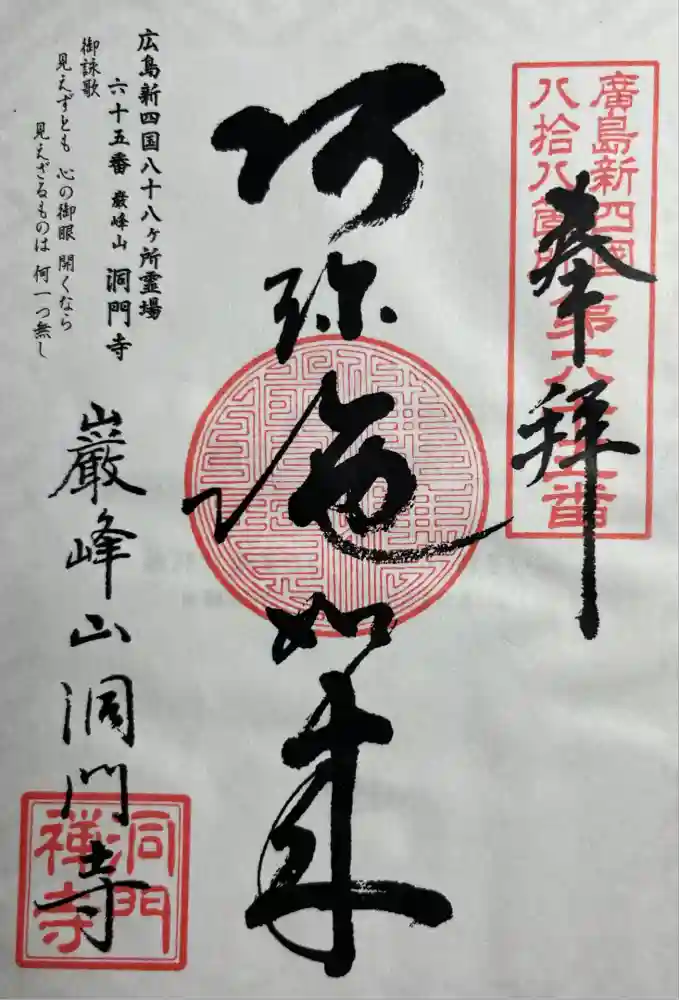 廣島新四國
八拾八箇所第六十五番
奉拝
阿弥陀如来
広島新四国八十八ヶ所霊場
六十五番 巌峰山 洞門寺
御詠歌
見えずとも 心の御眼 開くなら
見えざるものは 何一つ無し
巖峰山洞門寺
洞門
禅寺